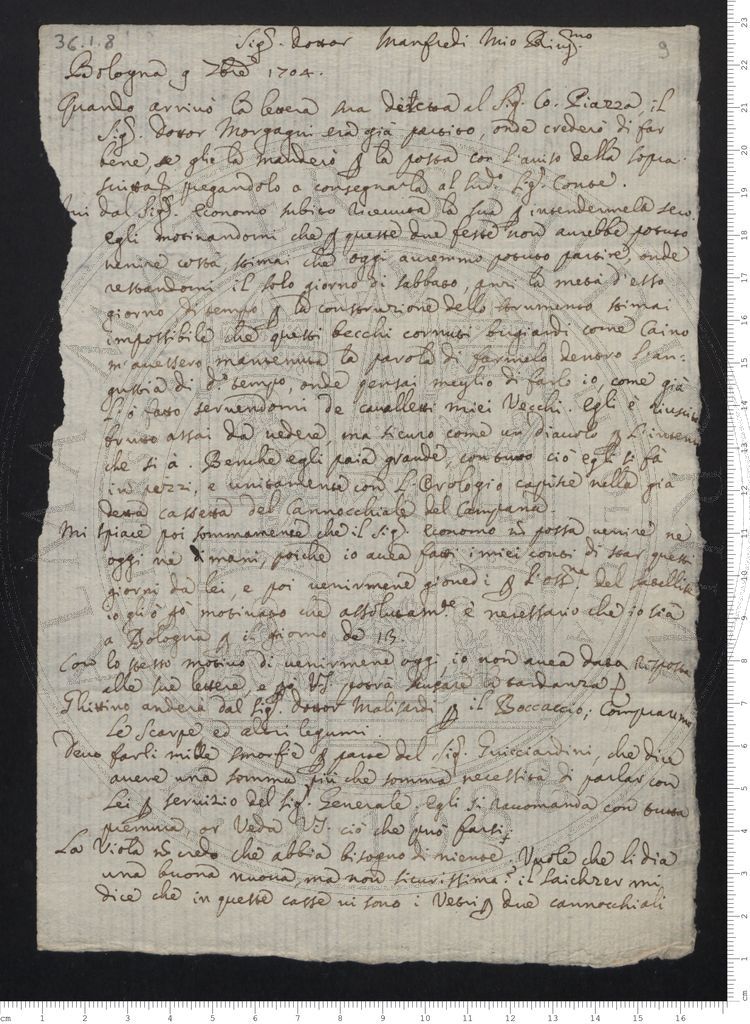 36.1.8
9
Sig.r Dottor Manfredi Mio Riv.mo
Bologna 9 7bre 1704.
Quando arrivò la lettera sua diretta al Sig. Co. Piazza, il
Sig. Dottor Morgagni era già partito, onde crederò di far
bene, se glie la manderò p la posta con l'aviso della sopra
scritta pregandolo a consegnarla al sud.o Sig. Conte.
dal Sig. Economo subito ricevuta la sua p intendermela seco
egli motivandomi che p queste due feste non aurebbe potuto
venire costà stimai che oggi auremmo potuto partire, onde
restandomi il solo giorno di sabbato, anzi la metà d'esso
giorno di tempo p la construzione dello strumento stimai
impossibile che questi becchi cornuti bugiardi come Caino
m'auessero mantenuta la parola di farmelo dentro l'an-
gustia di d.o tempo, onde pensai meglio di farlo io, come già
l'ò fatto servendomi de cavalletti miei vecchi. Egli è riuscito
brutto assai da vedere, ma sicuro come un diavolo p l'intento
che si à. Benche egli paia grande, con tutto ciò egli si fà
in pezzi, e unitamente con l'Orologio capisce nella già
detta cassetta del Cannocchiale del Campana.
Mi spiace poi sommamente che il Sig. Economo nō possa venire nè
oggi nè dimani, poiche io avea fatti i miei conti di star questi
giorni da lei, e poi venirmene giovedì p l'oss.ne del satellite
io già gò motivato che assolutam.te è necessario che io sia
a Bologna p il giorno de 13.
Con lo stesso motivo di venirmene oggi, io non avea data risposta
alle sue lettere, e poi VS. potrà la tardanza
Ghittino anderà dal Sig. Dottor Malisardi p il Boccaccio;
le scarpe ed altri legumi.
Devo farli mille smorfie p parte del Sig. Guicciardini, che dice
avere una somma più che somma necessità di parlar con
Lei p servizio del Sig. Generale. Egli si racomanda con tutta
premura or veda VS. ciò che può farsi
La Viola nō credo che abbia bisogno di niente. Vuole che li dia
una buona nuova, ma non sicurissima? il Laichzer mi
dice che in queste casse vi sono i Vetri p due cannocchiali